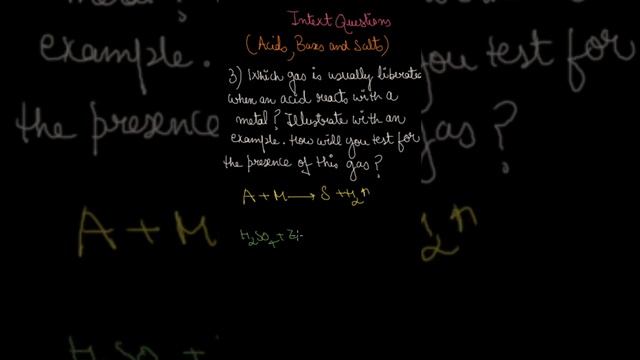 Intext Questions
(Acids, Bases and Salts)
3) Which gas is usually liberated
when an acid reacts with a
metal? Illustrate with an
example. How will you test for
the presence of this gas?
A + M → S + H2↑
H2SO4 + Zi